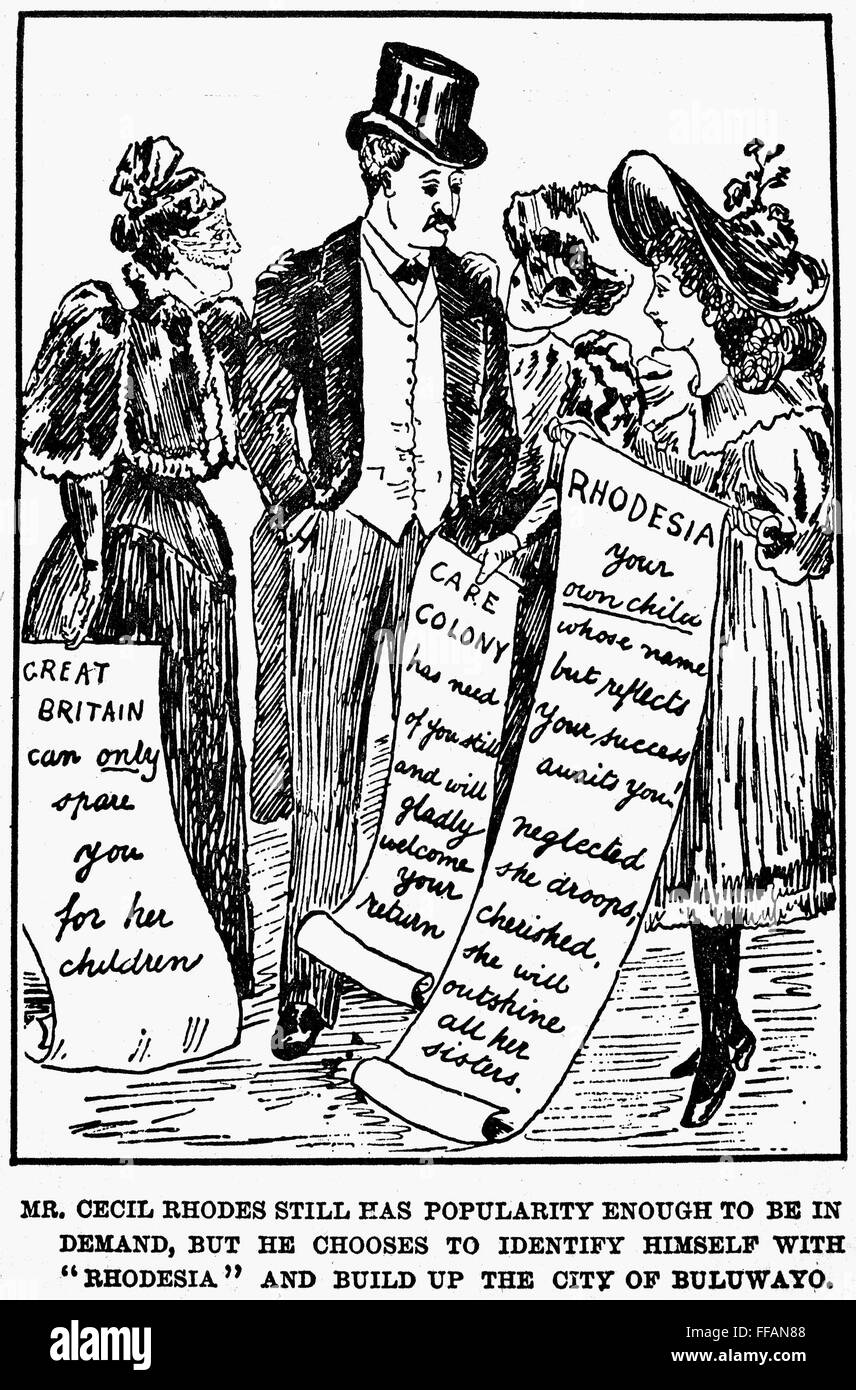 GREAT
BRITAIN
can only
spare
you
for her
children
CARE
COLONY
has need
of you still
and will
gladly
welcome
your
return
RHODESIA
your
own child
whose name
but reflects
your success
awaits you!
neglected
she droops,
cherished,
she will
outshine
all her
sisters.
MR. CECIL RHODES STILL HAS POPULARITY ENOUGH TO BE IN
DEMAND, BUT HE CHOOSES TO IDENTIFY HIMSELF WITH
"RHODESIA" AND BUILD UP THE CITY OF BULUWAYO.
alamy
alamy stock photo
FFAN88
www.alamy.com